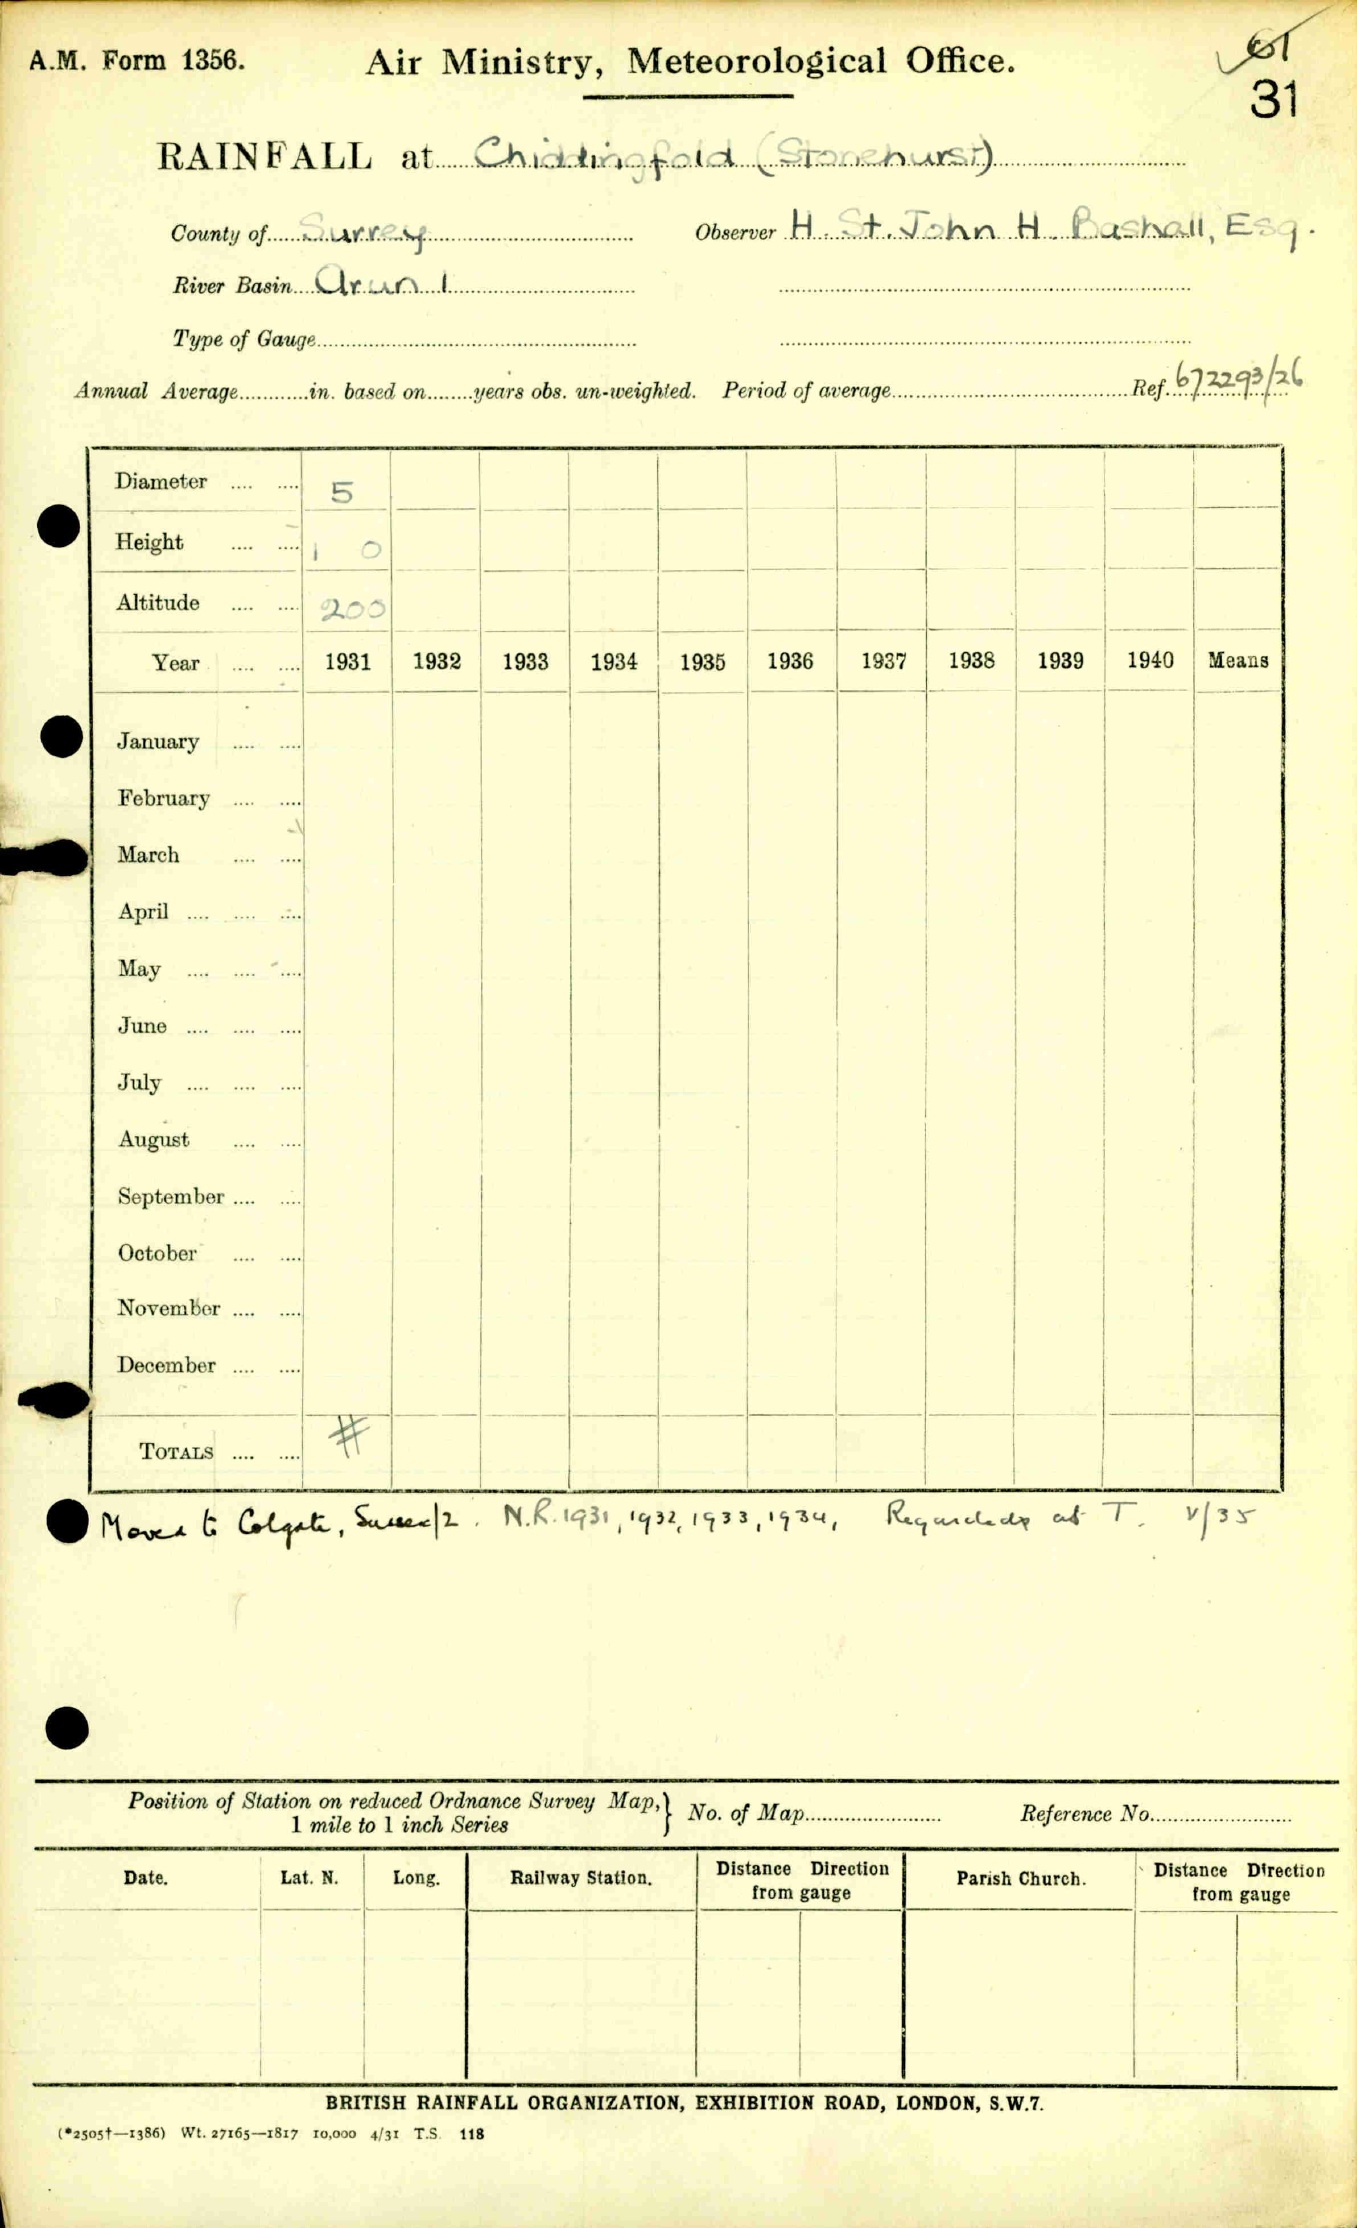 A.M. Form 1356.
Air Ministry, Meteorological Office.
61
31
RAINFALL at Chiddingfold (Stonehurst)
County of Surrey Observer H. St. John H. Bashall, Esq.
River Basin Arun 1
Type of Gauge
Annual Average in. based on years obs. un-weighted. Period of average Ref. 672293/26
Diameter 5
Height 1 0
Altitude 200
Year 1931 1932 1933 1934 1935 1936 1937 1938 1939 1940 Means
January
February
March
April
May
June
July
August
September
October
November
December
TOTALS #
Moved to Colgate, Sussex/2. N.R. 1931, 1932, 1933, 1934, Regarded as T. V/35
Position of Station on reduced Ordnance Survey Map, } No. of Map Reference No.
1 mile to 1 inch Series
Date. Lat. N. Long. Railway Station. Distance Direction from gauge Parish Church. Distance Direction from gauge
BRITISH RAINFALL ORGANIZATION, EXHIBITION ROAD, LONDON, S.W.7.
(*2505†—1386) Wt. 27165—1817 10,000 4/31 T.S. 118